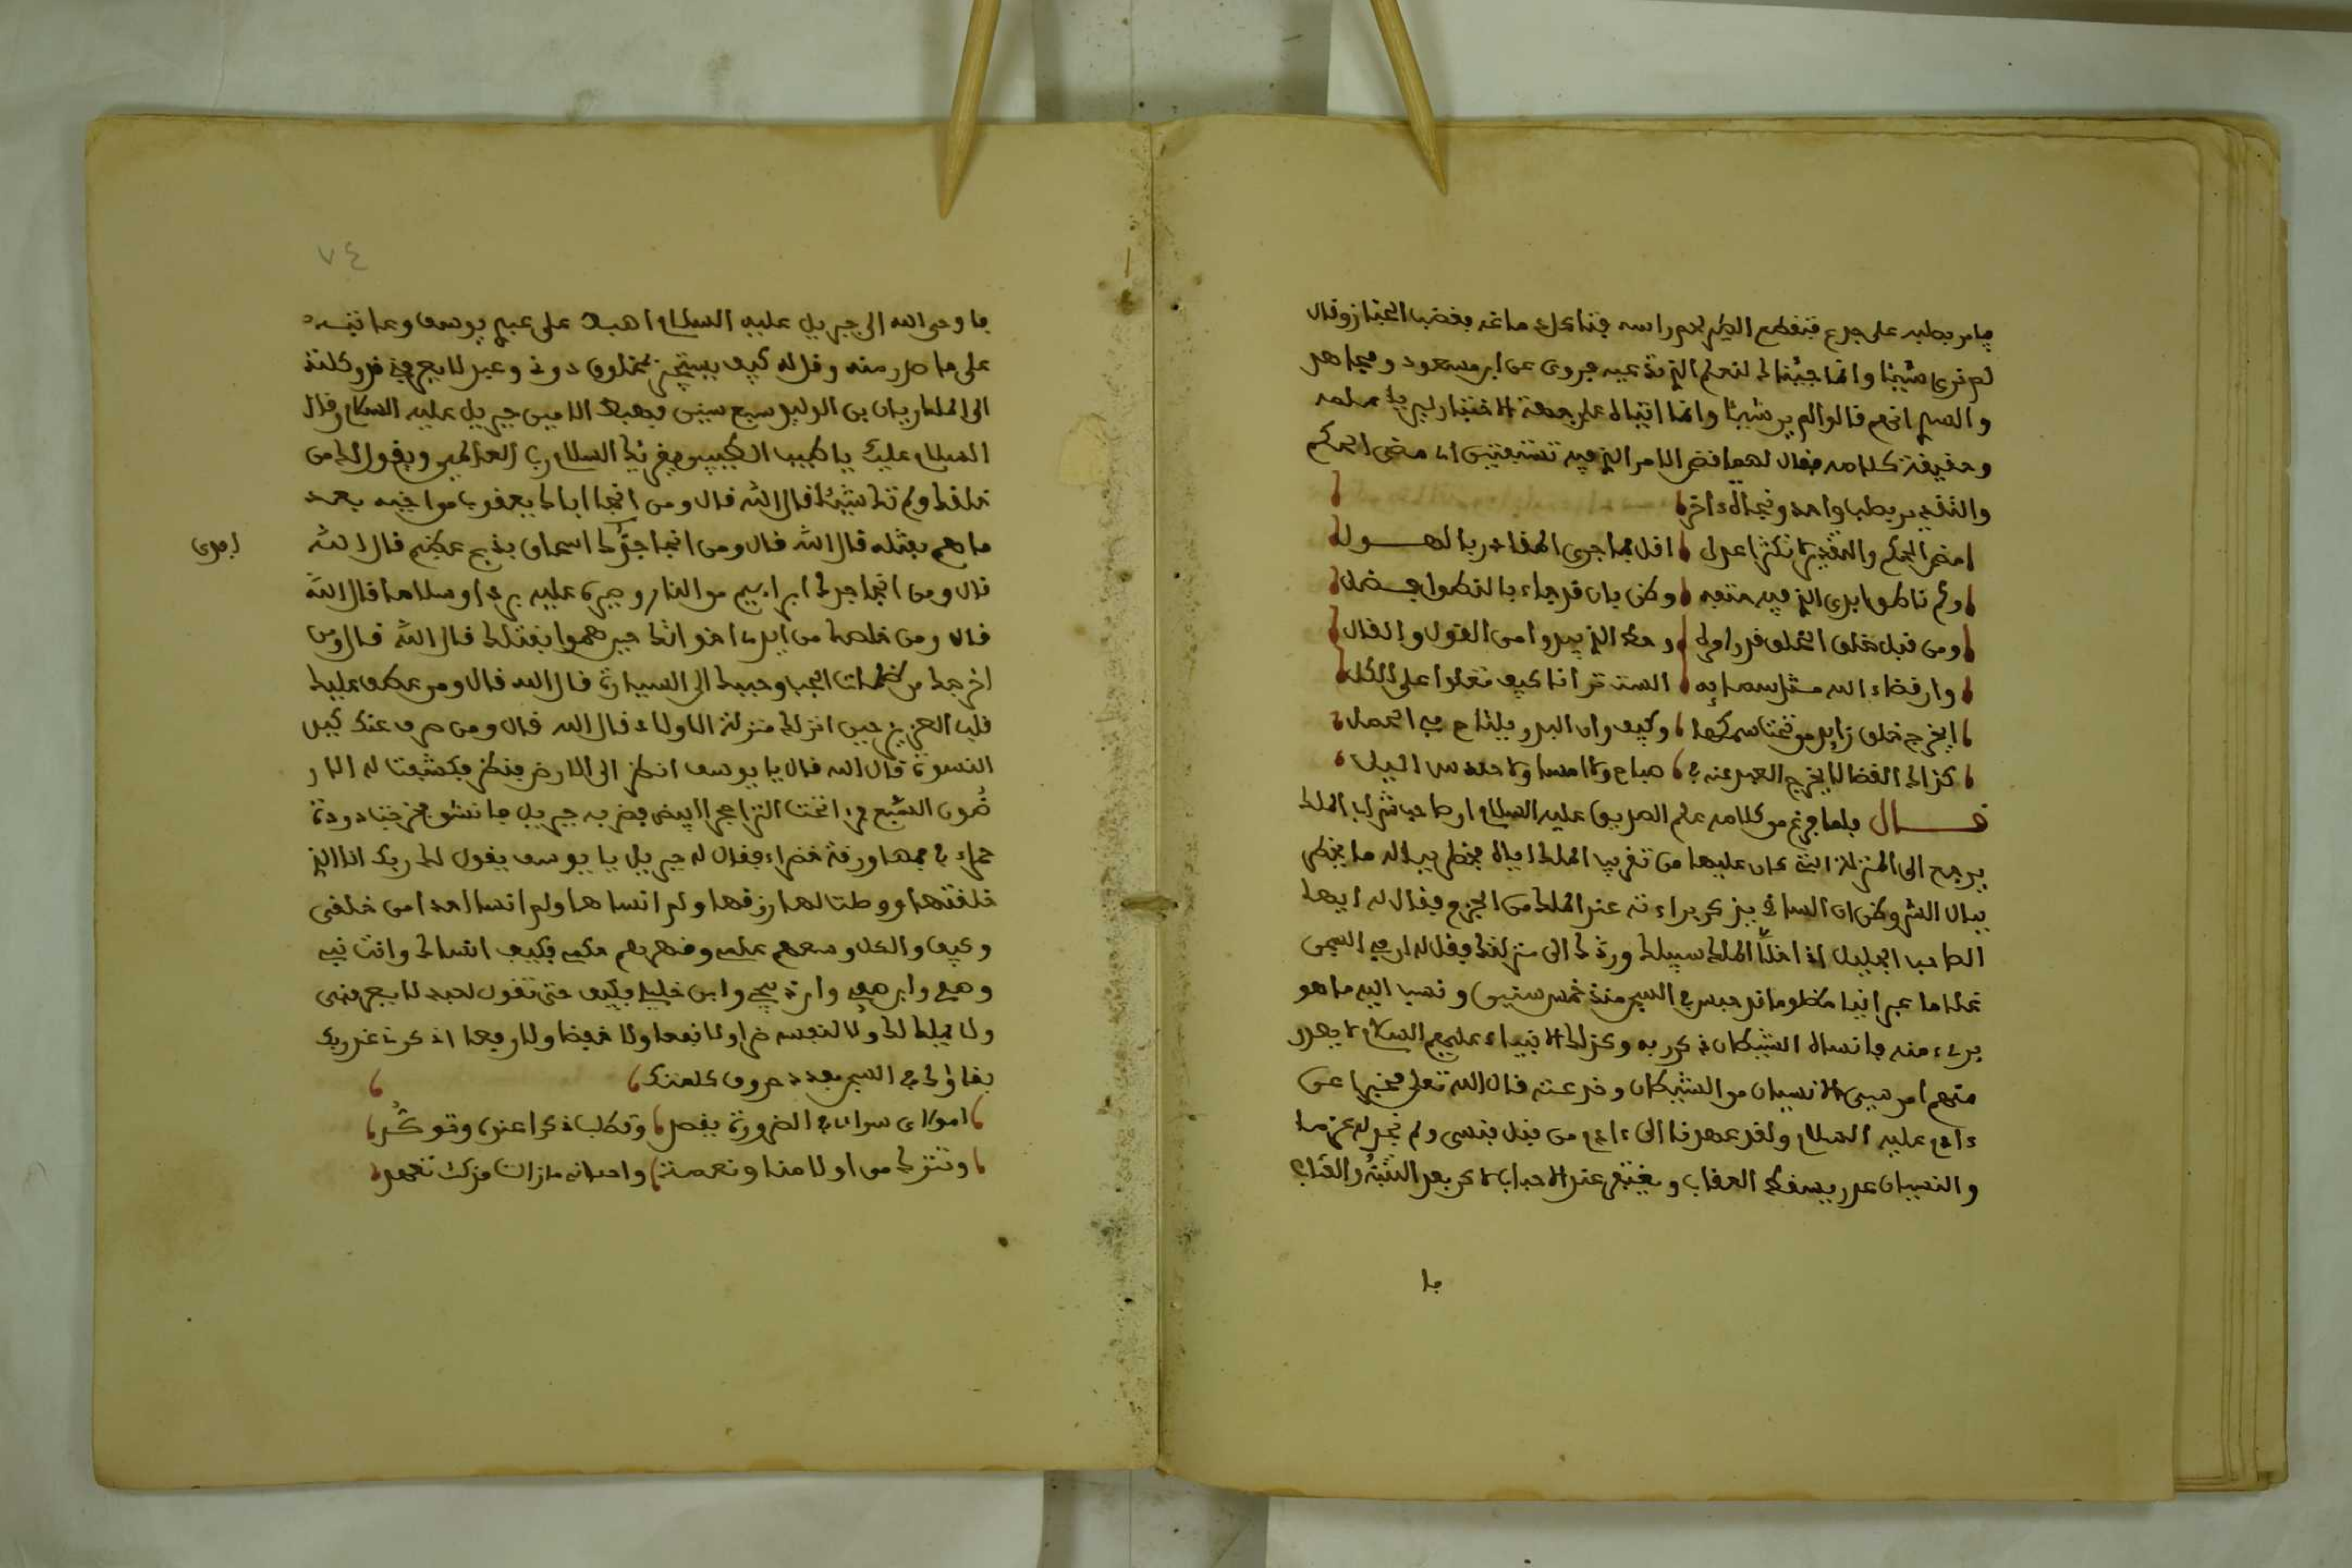 فامر بصلبه على جذع فتقطع الطير لحم راسه فبنا كل ما غه بغضب الخباز وقال
لم نرى شيئا وانما جئناك لنعلم الذي عبره فروى عن ابن مسعود ومجاهد
والسدي انهم قالوا لم ير شيئا وانما اتياه على جهة الاختبار ليريا علمه
وحقيقة كلامه فقال لهما قضي الامر الذي فيه تستفتين اي مضى الحكم
والتقدير بصلب واحد ونجاة اخر
امض الحكم والتقدير اقل بما جرى المقادر بالهول
ولم تاطوا بدى الذي فيه وكن بان قد جاء بالفضل
ومن قبل خلق الخلق من القول والفال
وان قضاء الله الست ترانا كيف نعلوا على الكل
وكيف وان البدر
كذاك القضا لا يخرج العبد عنه صباح ولا امسا ولا حندس الليل
قال فلما فرغ من كلامه علم الصديق عليه السلام ان صاحب شراب الملك
يرجع الى المنزلة التي كان عليها من تقريب الملك اياه فخطر بباله ما يخطر
ببال البشر وظن ان الساقي يذكر براءته عند الملك من الجرم فقال له ايها
الصاحب الجليل اذا خلا الملك سبيلك وردك الى منزلتك فقل له ان في السجن
غلاما عبرانيا مظلوما قد حبس في السجن منذ خمس سنين ونسب اليه ما هو
بريء منه فانساه الشيطان ذكر ربه وكذلك الانبياء عليهم السلام لا يصدر
منهم امر هين الا نسيان من الشيطان وخدعته قال الله تعلى مخبرا عن
ءادم عليه السلام ولقد عهدنا الى ءادم من قبل فنسي ولم نجد له عزما
والنسيان عذر يسقط العقاب ويغتفر عند الاحباب لاكن بعد التنبه والعتاب
فا
٧٤
فاوحى الله الى جبريل عليه السلام اهبط على عبدي يوسف وعاتبه
على ما صدر منه وقل له كيف يستجير بمخلوق دوني وعبد لا يعرفني قد وكلتك
الى الملك ريان بن الوليد سبع سنين فهبط الامين جبريل عليه السلام وقال
السلام عليك يا طيب الطيبين يقريك السلام رب العالمين ويقول لك من
خلقك ولم تك شيئا قال الله قال ومن انجا اباك يعقوب من اخيه بعد
ما هم بقتله قال الله قال ومن انجا جدك اسحاق بذبح عظيم قال الله
قال ومن انجا جدك ابراهيم من النار وصيرها عليه بردا وسلاما قال الله
قال ومن خلصك من ايدي اخوانك حين هموا بقتلك قال الله قال ومن
اخرجك من ظلمات الجب وحببك الى السيارة قال الله قال ومن عطف عليك
قلب العزيز حين انزلك منزلة الاولاد قال الله قال ومن صرف عنك كيد
النسوة قال الله قال يا يوسف انظر الى الارض فنظر فكشفت له الارضون السبع فرا تحت الثرا حجرا ابيض فضربه جبريل فانشق فخرجت دودة
حمراء في فمها ورقة خضراء فقال له جبريل يا يوسف يقول لك ربك انا الذي
خلقتها ووصلت لها رزقها ولم انساها ولم انسا احدا من خلقي
وكيف والكل وسعهم علمي وقهرهم حكمي فكيف انساك وانت نبيي
وصفيي وابن صفيي وابن ذبيحي وابن خليلي فكيف حتى تقول لعبد لا يعرفني
ولا يملك لك ولا لنفسه ضرا ولا نفعا ولا خفضا ولا رفعا اذكرني عند ربك
بقاؤك في السجن بعدد حروف كلمتك
امولاي سواي في الضرورة يقصد وتطلب ذكرا عنده وتوكد
وتترك من اولا منا ونعمة واحسانه مازلت منك تعهد